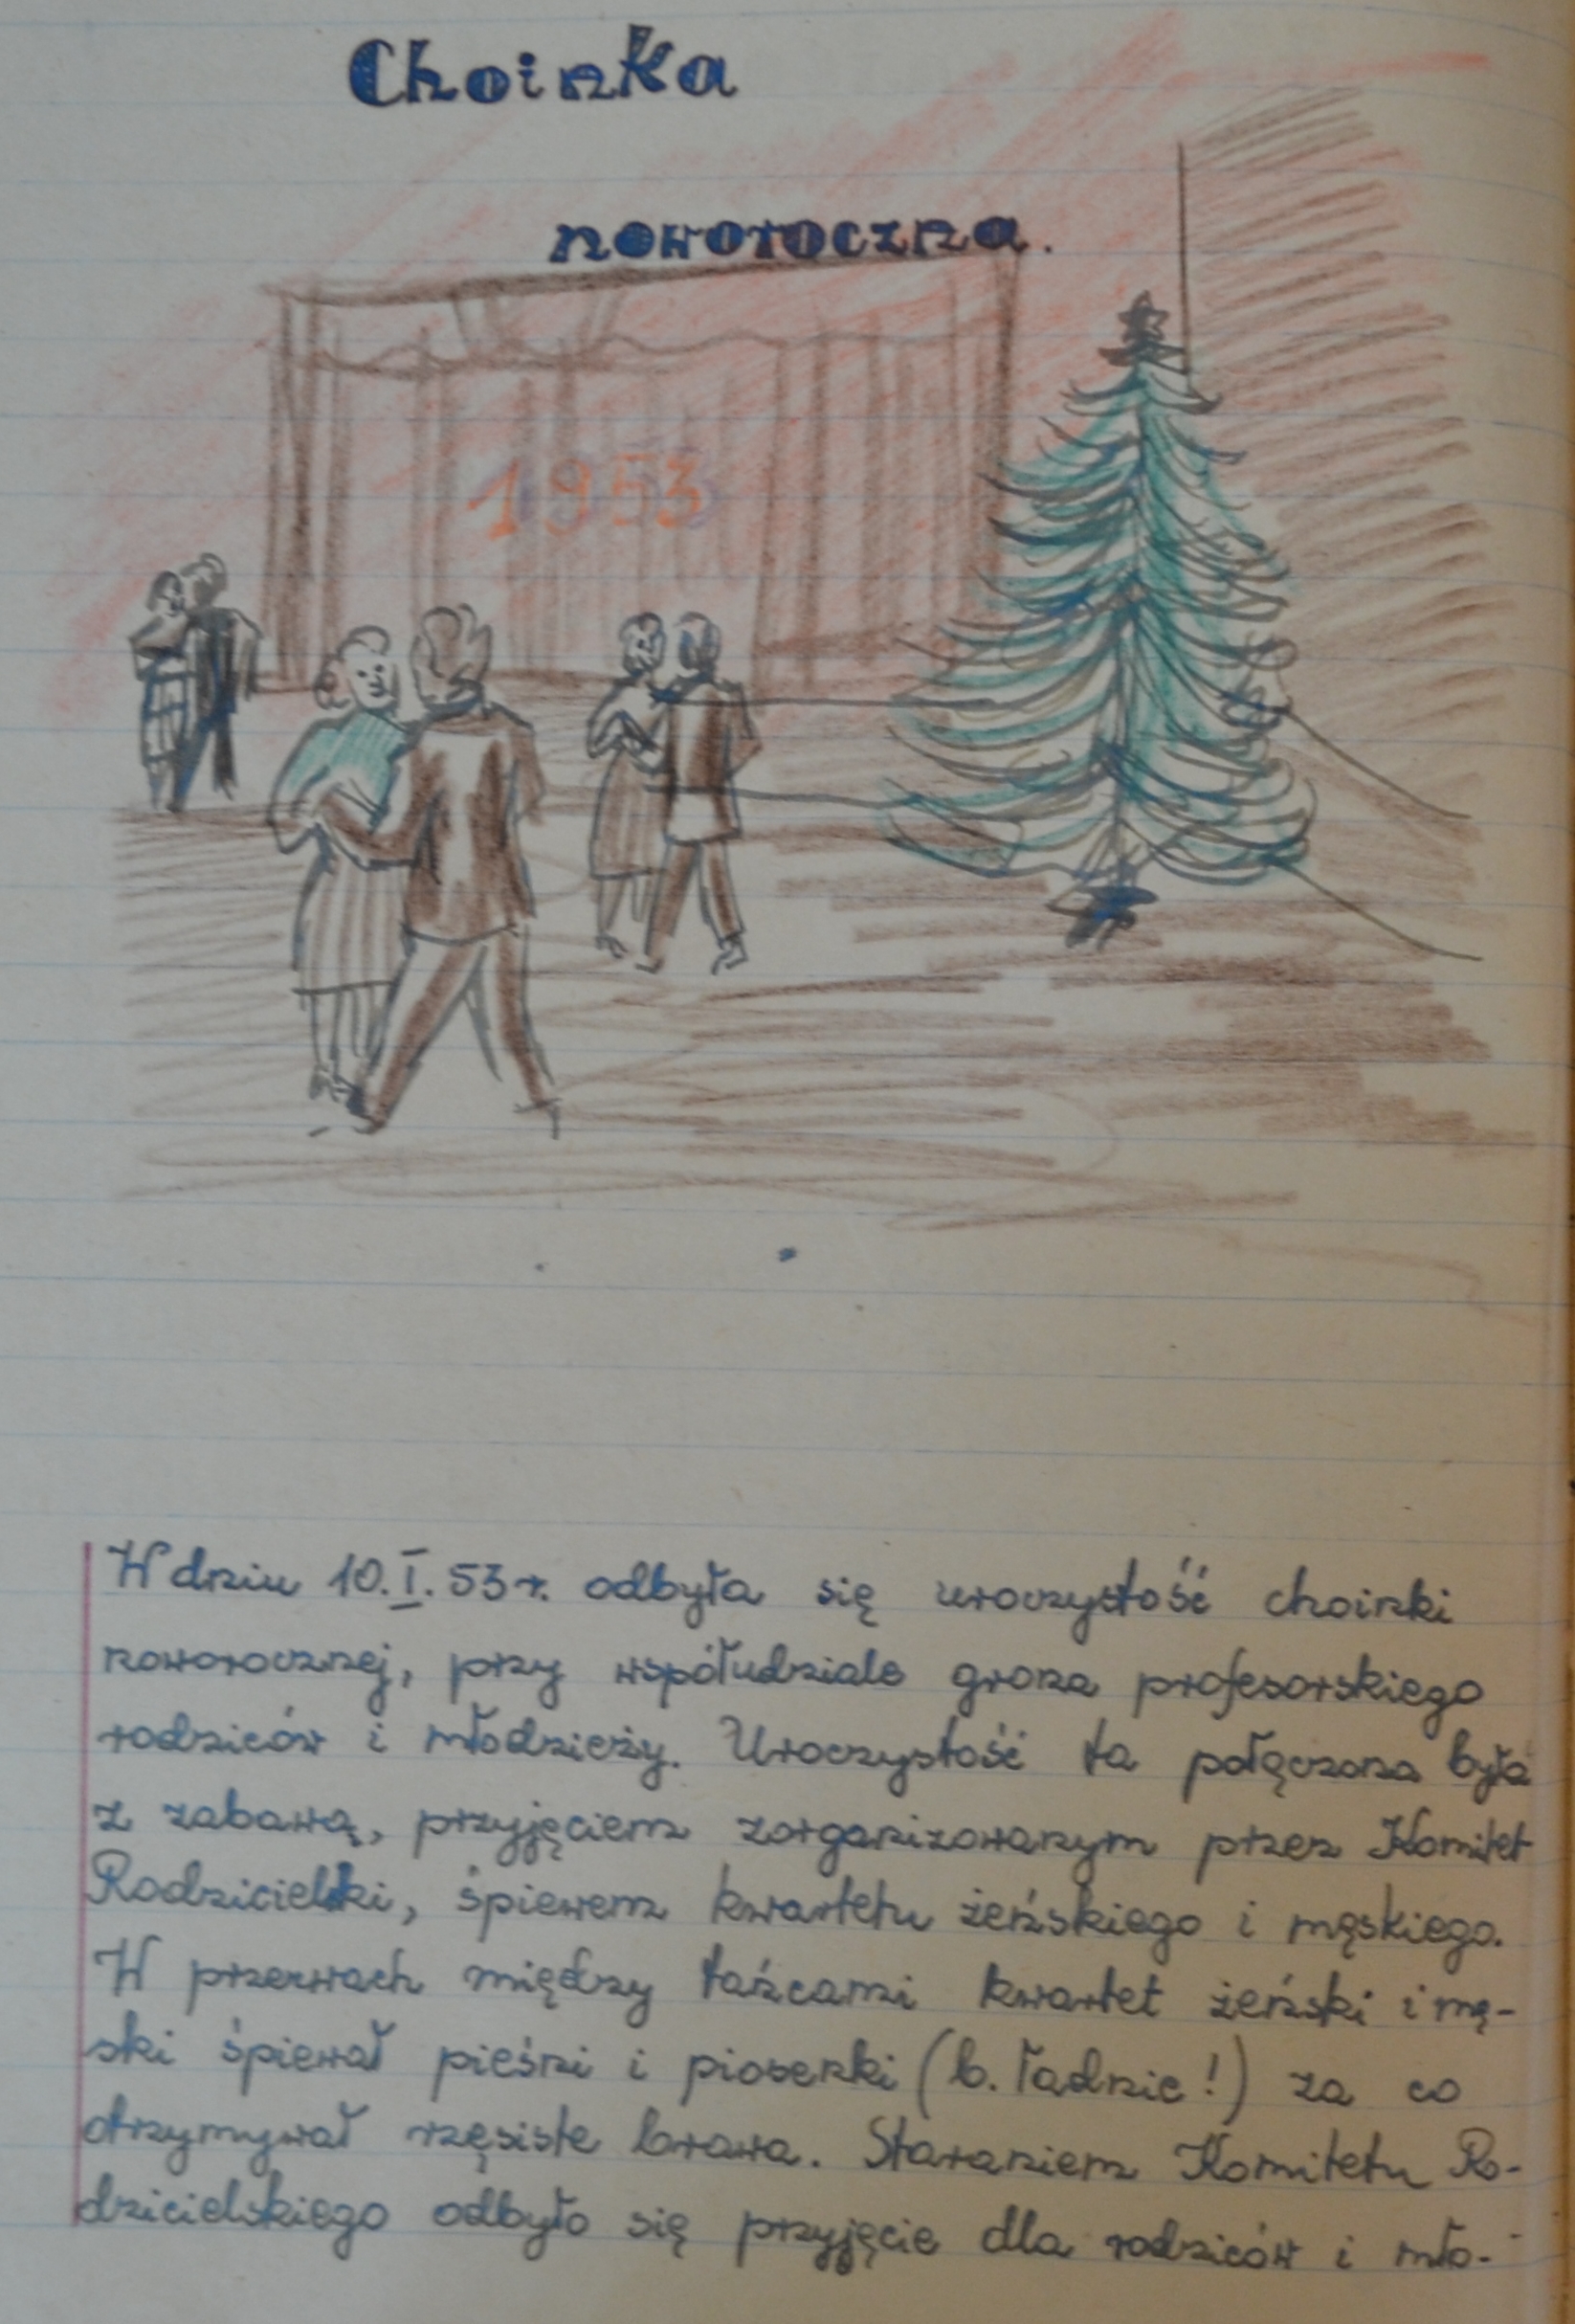 Choinka
noworoczna.
1953
W dniu 10.I.53 r. odbyła się uroczystość choinki
noworocznej, przy współudziale grona profesorskiego
rodziców i młodzieży. Uroczystość ta połączona była
z zabawą, przyjęciem zorganizowanym przez Komitet
Rodzicielski, śpiewem kwartetu żeńskiego i męskiego.
W przerwach między tańcami kwartet żeński i mę-
ski śpiewał pieśni i piosenki (b. ładnie!) za co
otrzymywał rzęsiste brawa. Staraniem Komitetu Ro-
dzicielskiego odbyło się przyjęcie dla rodziców i mło-